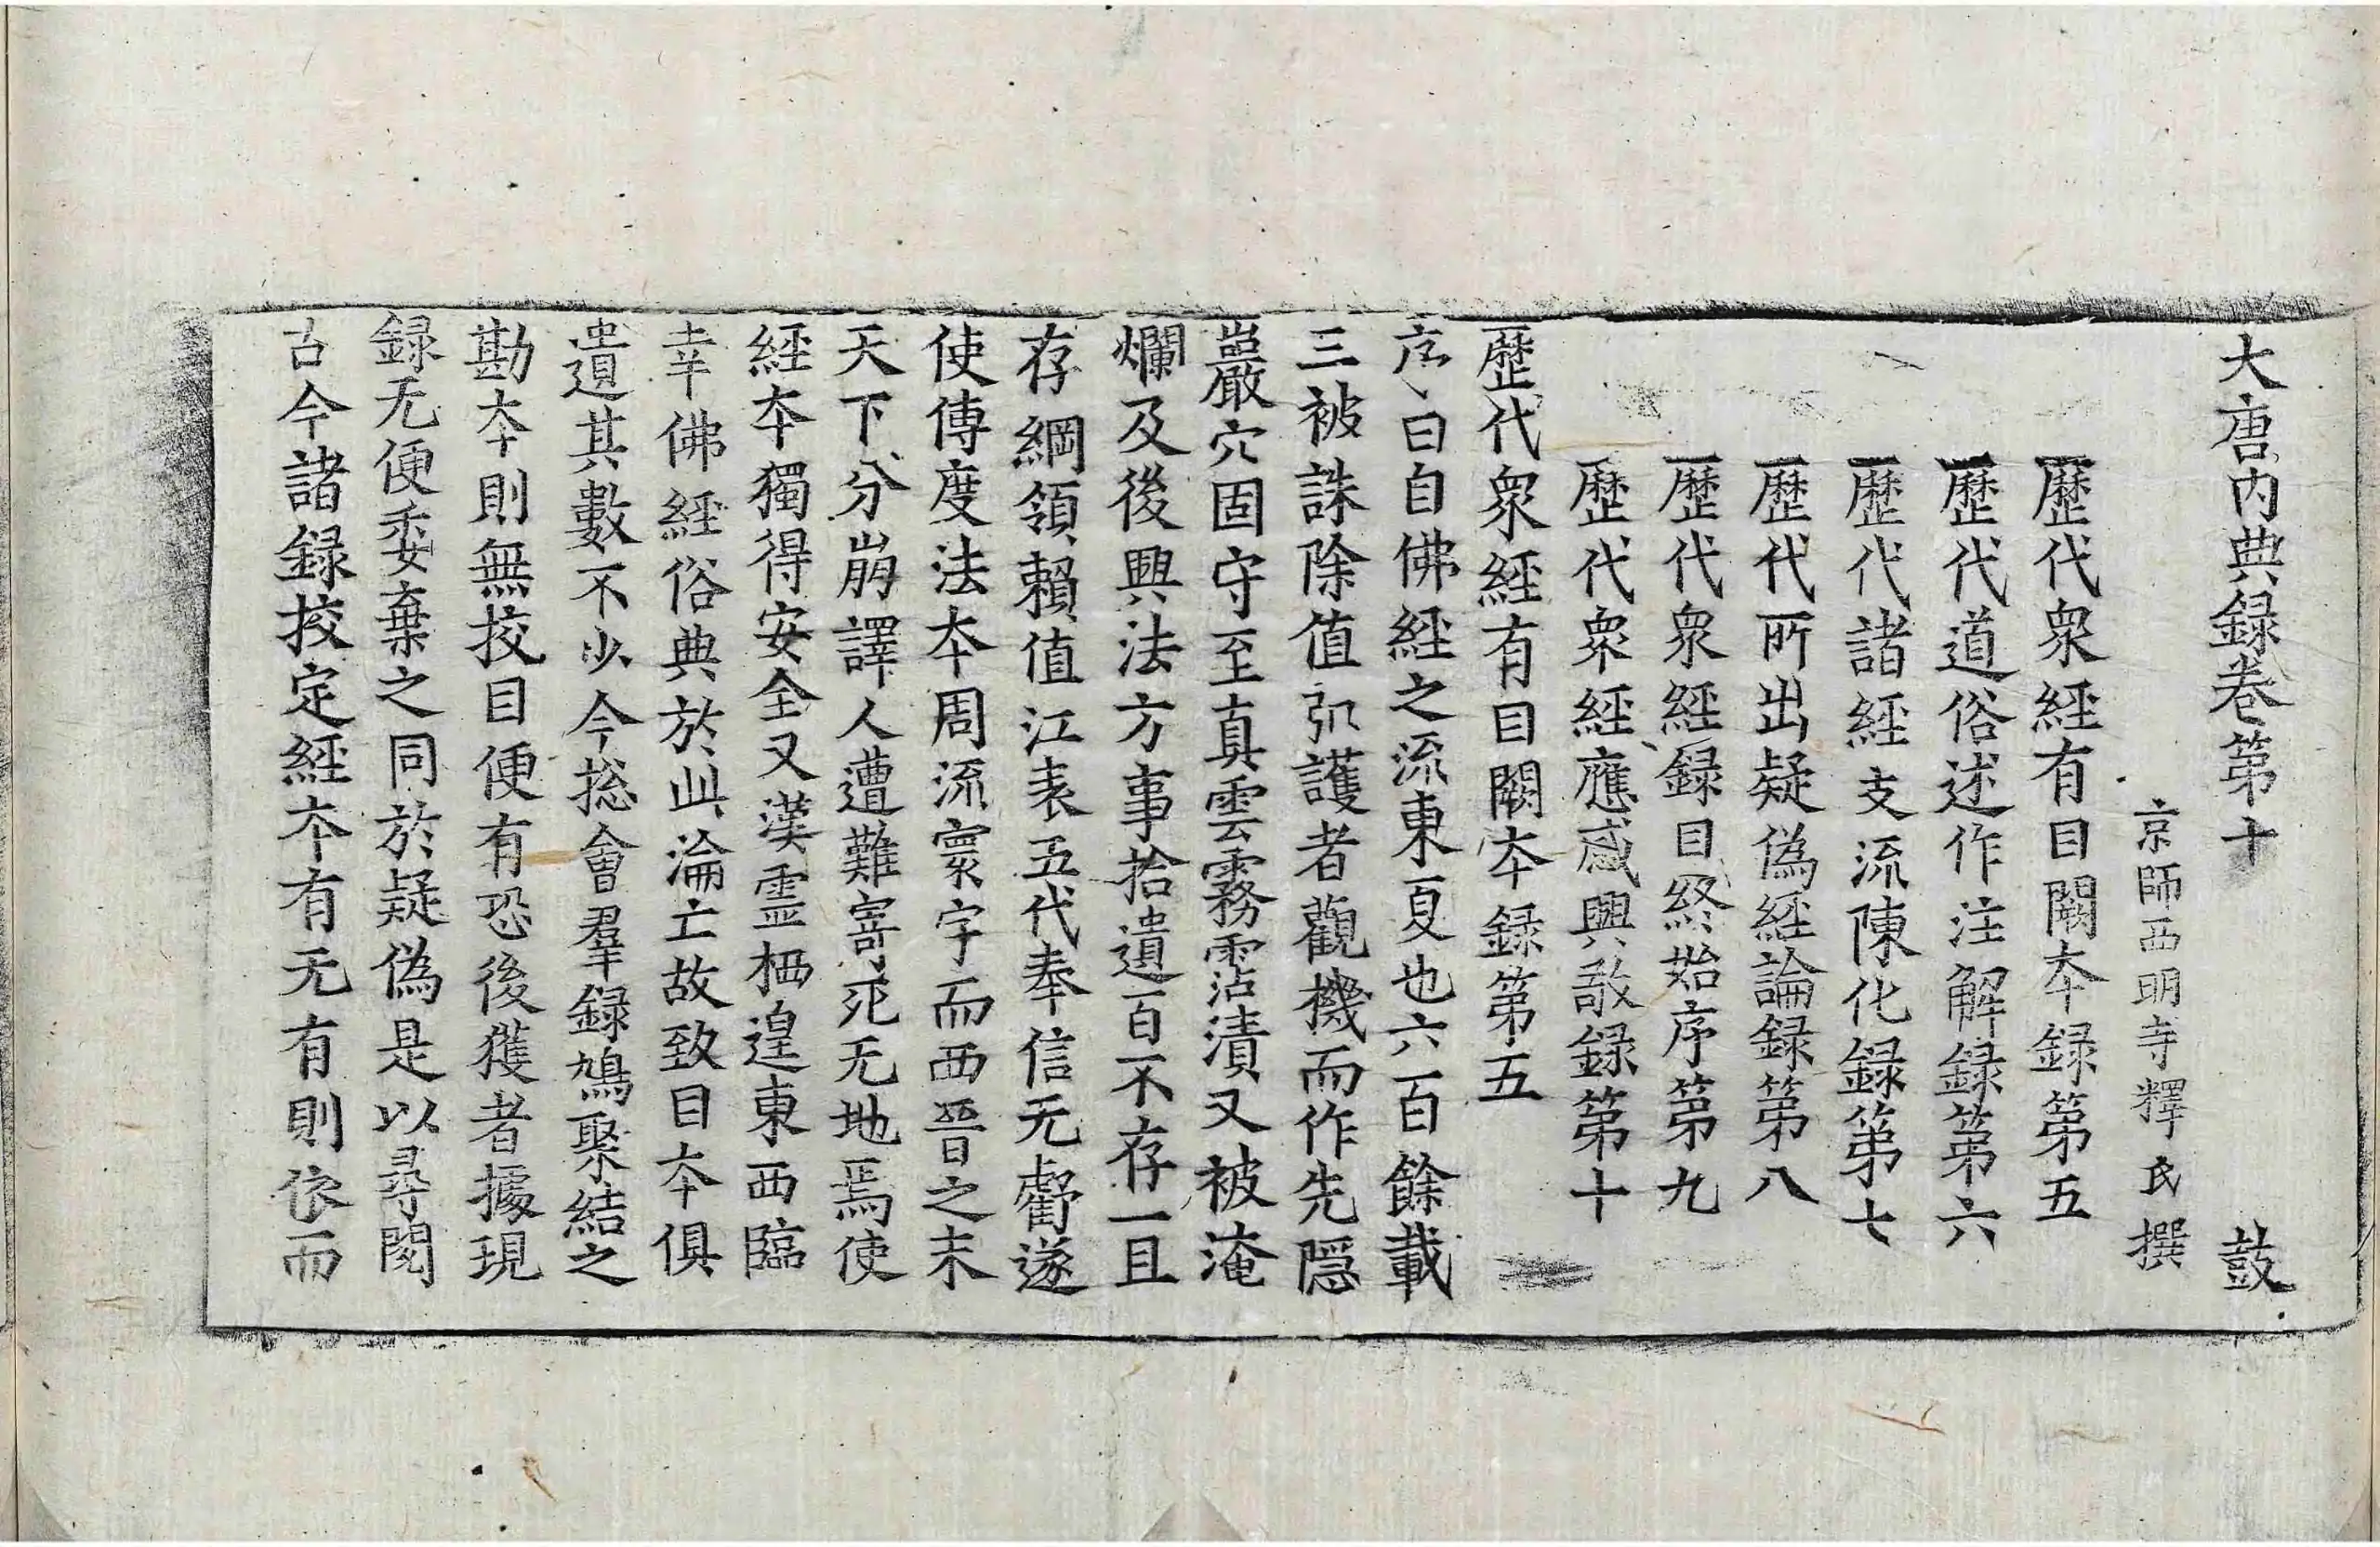 大唐內典録卷第十　鼓
京師西明寺釋氏撰
歷代衆經有目闕夲録第五
歷代道俗述作注解録第六
歷代諸經支流陳化録第七
歷代所出疑偽經論録第八
歷代衆經録目終始序第九
歷代衆經應感興敬録第十
歷代衆經有目闕夲録第五
序曰自佛經之流東夏也六百餘載
三被誅除值弘護者觀機而作先隱
巖穴固守至真雲霧霑漬又被淹
爛及後興法方事拾遺百不存一且
存綱領賴值江表五代奉信无虧遂
使傳度法夲周流寰宇而西晉之末
天下分崩譯人遭難寄死无地焉使
經夲獨得安全又漢靈栖遑東西臨
幸佛經俗典於此淪亡故致目夲俱
遺其數不少今揔會羣録鳩聚結之
勘夲則無挍目便有恐後獲者據現
録无便委棄之同於疑偽是以尋閱
古今諸録挍定經夲有无有則依而